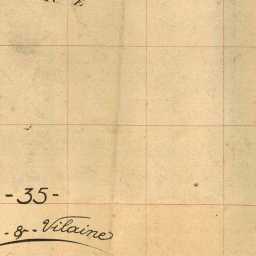 E
- 35 -
- & - Vilaine